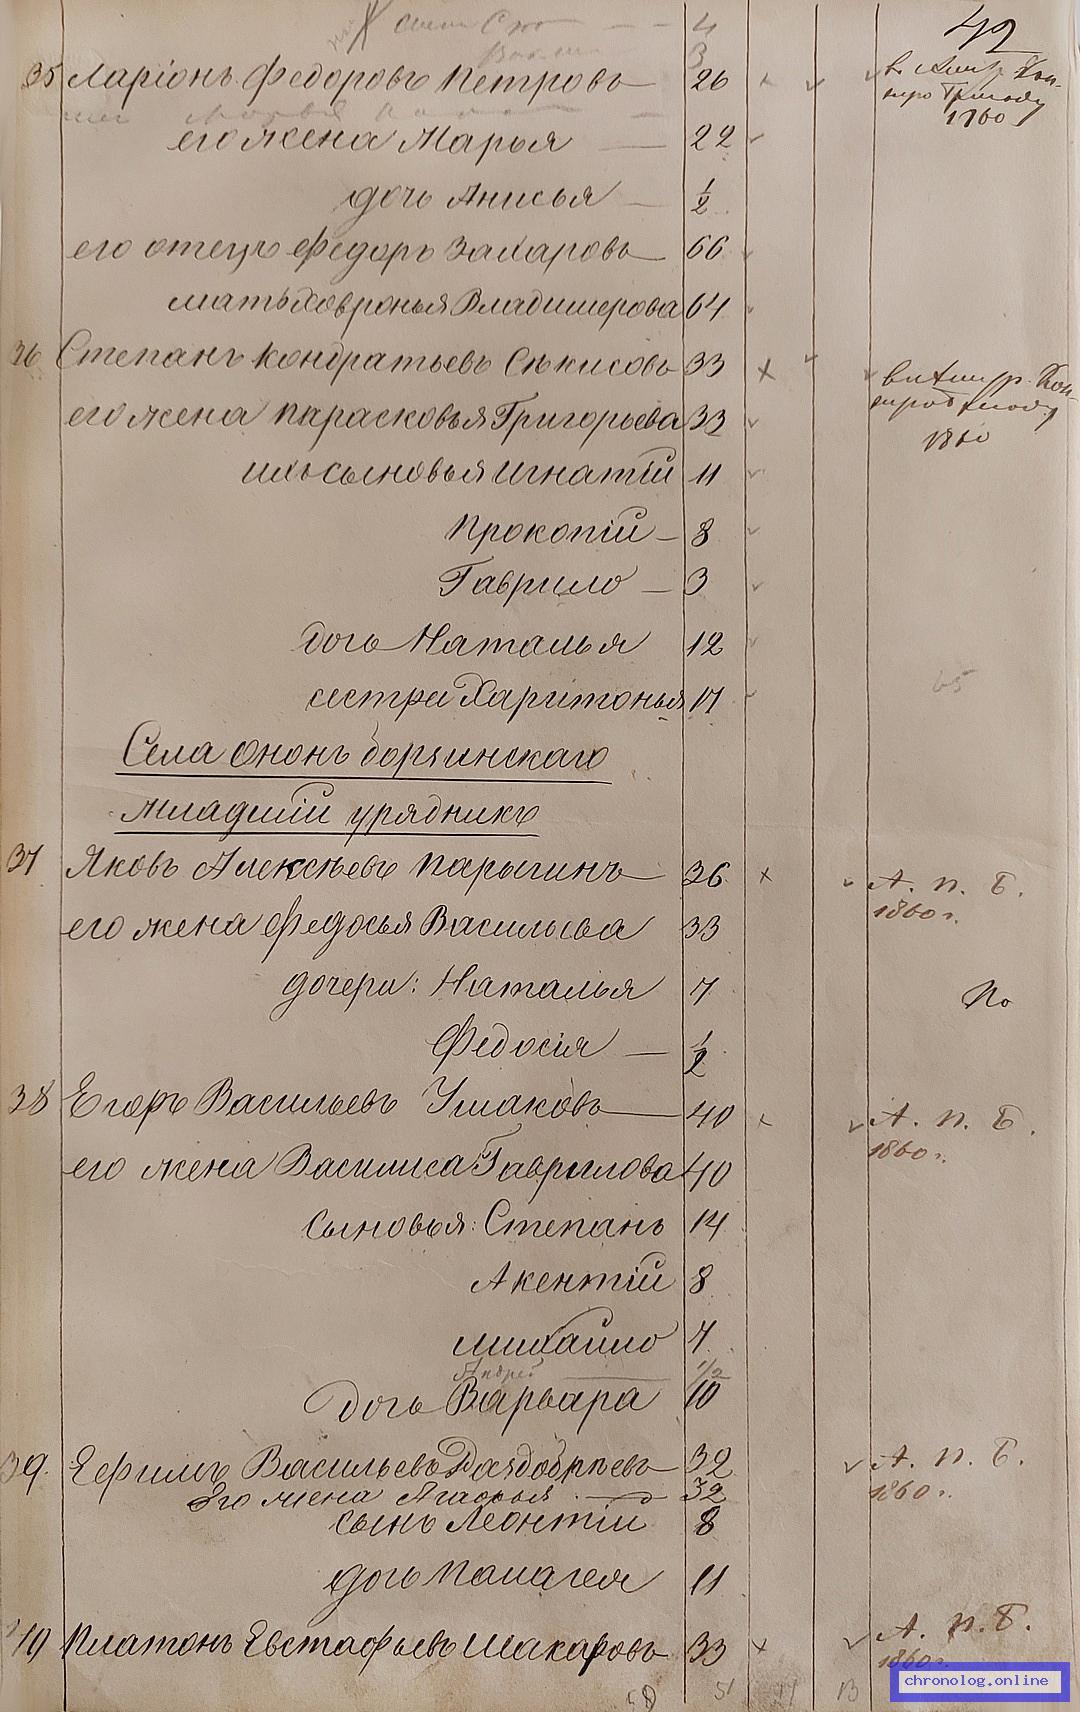 42
4
3
35 Ларіонъ Федоровъ Петровъ 26
1860
его жена Марья 22
дочь Анисья 1/2
его отецъ Федоръ Захаровъ 66
мать Ховронья Владимерова 64
36 Степанъ Кондратьевъ Сѣкисовъ 33
1860
его жена Парасковья Григорьева 33
ихъ сыновья Игнатій 11
Прокопій 8
Гаврило 3
дочь Наталья 12
сестра Харитонья 17
65
Села Ононъ борзинскаго
Младшій урядникъ
37 Яковъ Алексѣевъ Парыгинъ 36 А. п. Б.
1860 г.
его жена Федосья Васильева 33
дочери: Наталья 7
По
Федосія 1/2
38 Егоръ Васильевъ Ушаковъ 40 А. п. Б.
1860 г.
его жена Василиса Гаврилова 40
сыновья: Степанъ 14
Акентій 8
Михайло 7
Андрей 1/2
дочь Варвара 10
39. Ефимъ Васильевъ Раздобрѣевъ 32 А. п. Б.
1860 г.
Его жена Агафья 32
сынъ Леонтій 8
дочь Палагея 11
40 Платонъ Евстафьевъ Макаровъ 33 А. п. Б.
1860 г.
51
13
chronolog.online